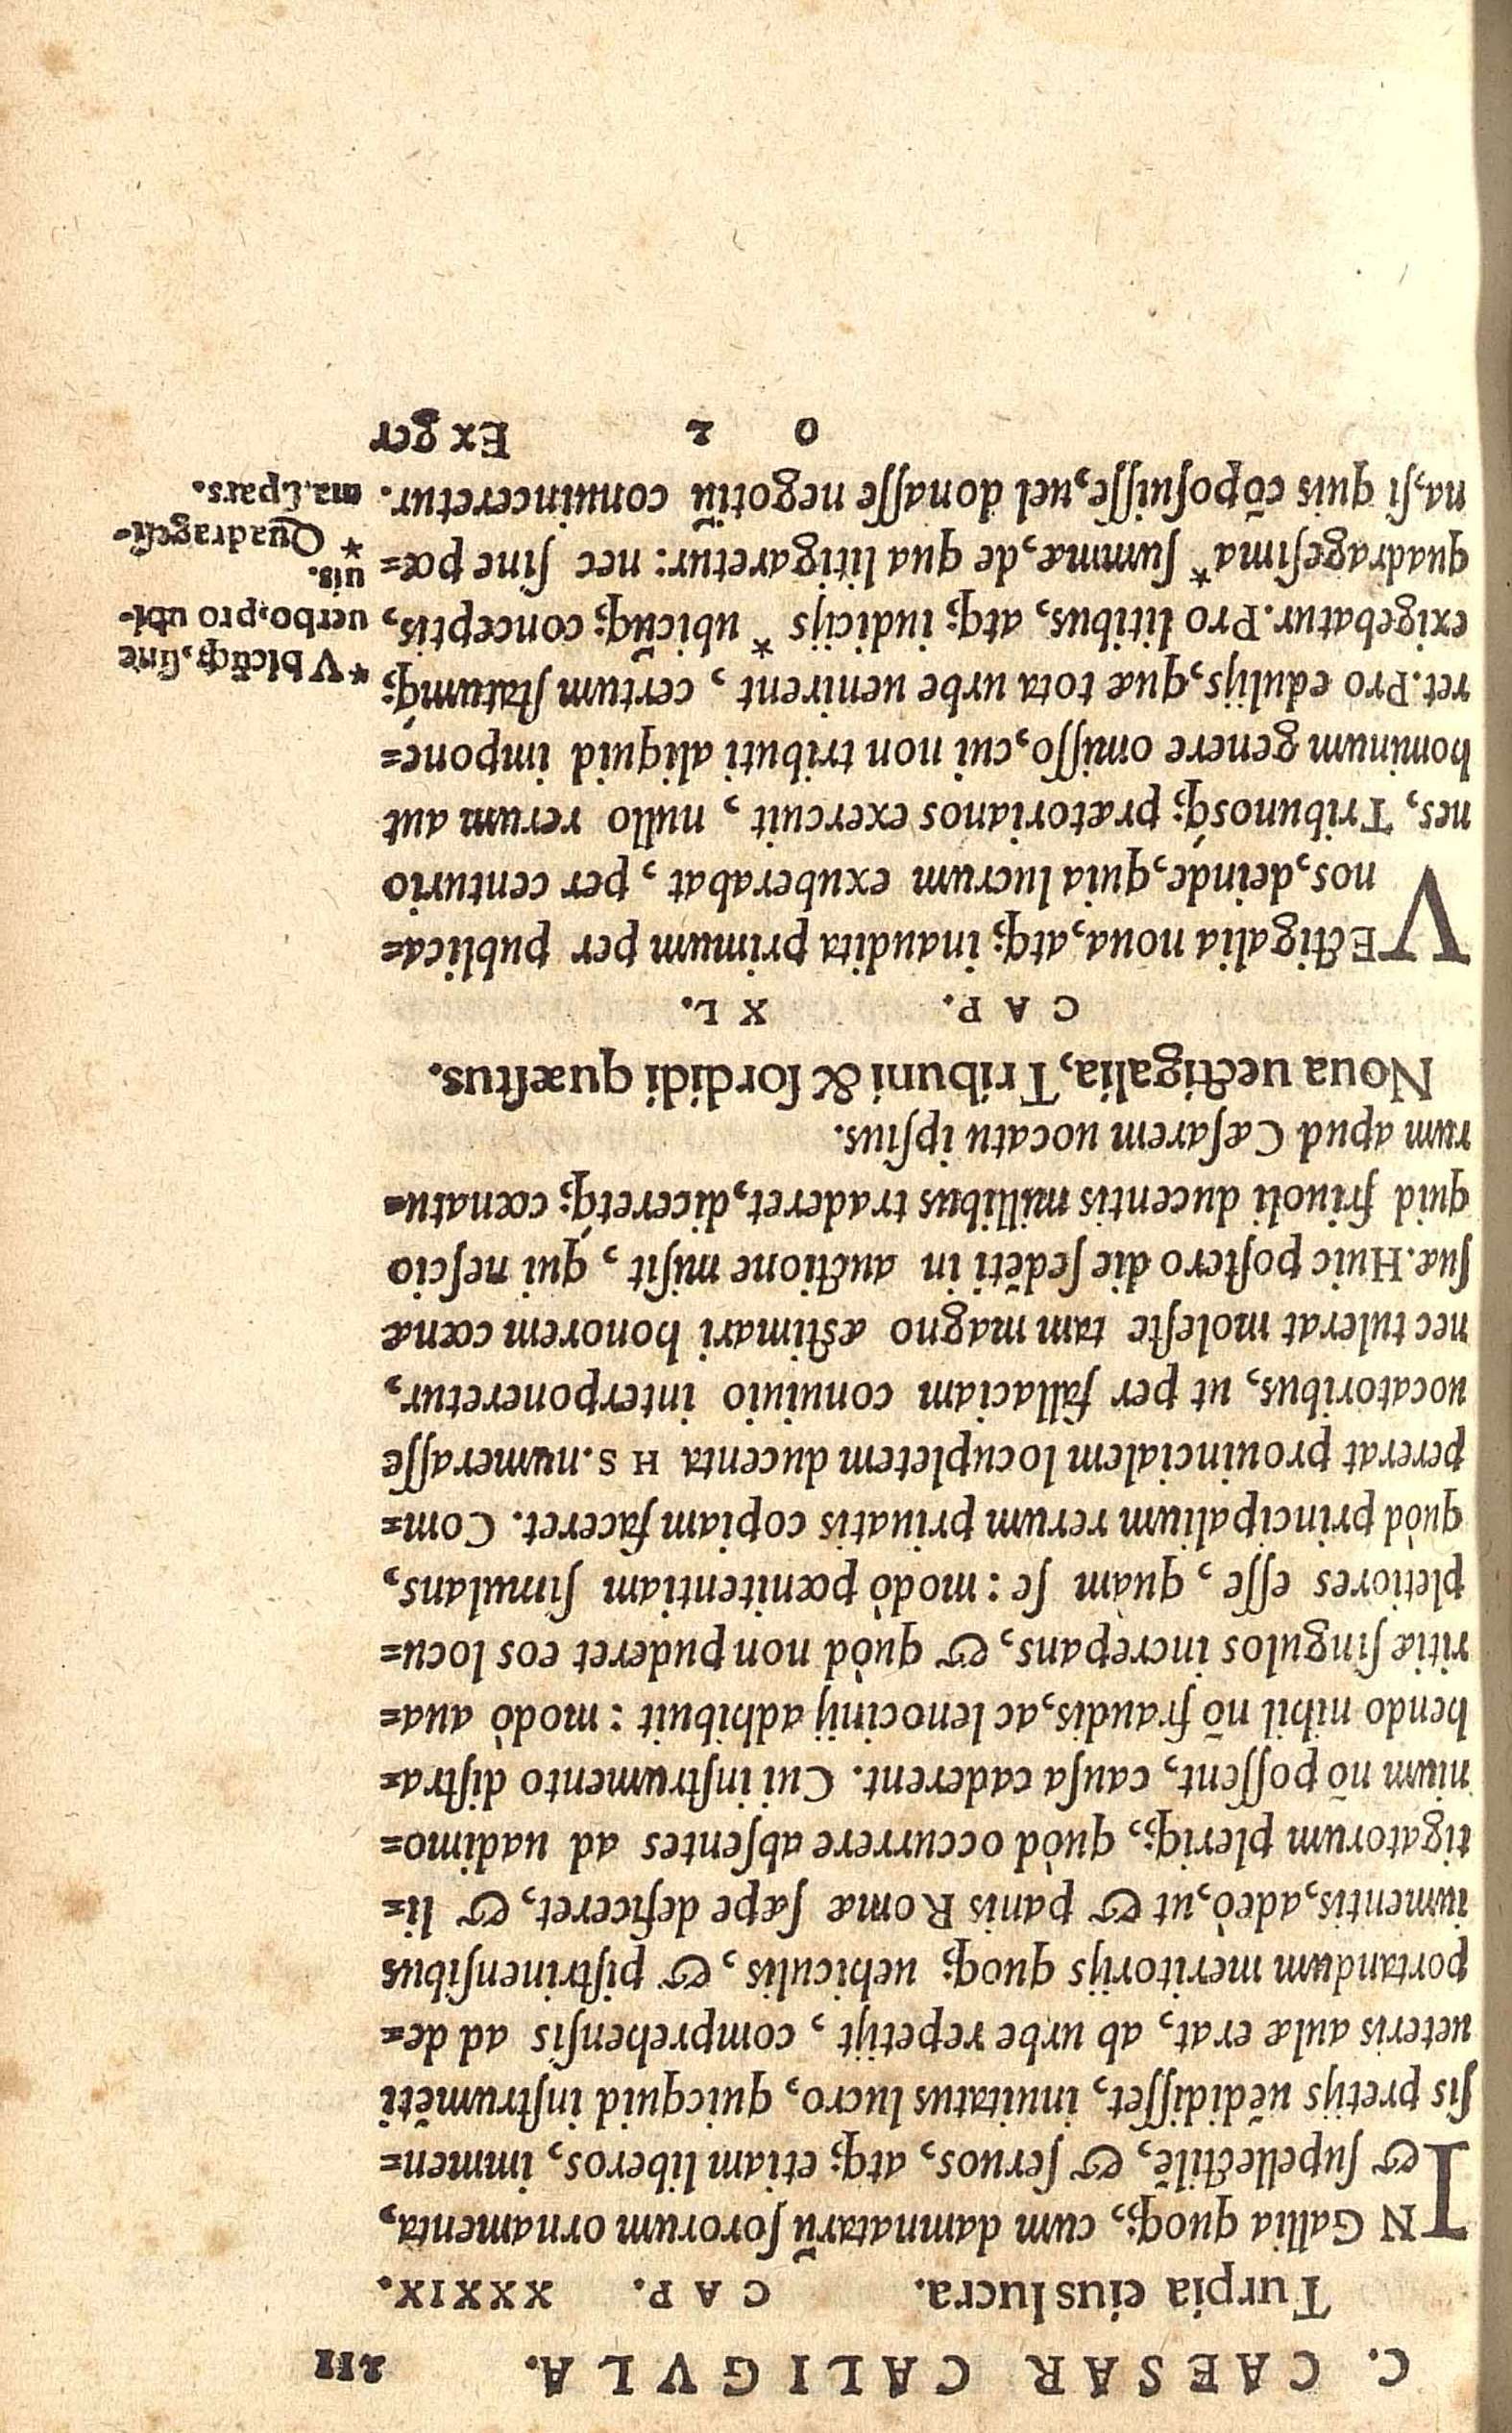 C. CAESAR CALIGVLA. 211
Turpia eius lucra. CAP. XXXIX.
IN Gallia quoq;, cum damnatarũ ſororum ornamenta,
& ſupellectilẽ, & ſeruos, atq; etiam liberos, immen=
ſis pretijs uẽdidiſſet, inuitatus lucro, quicquid inſtrumẽti
ueteris aulæ erat, ab urbe repetijt, comprehenſis ad de=
portandum meritorijs quoq; uehiculis, & piſtrinenſibus
iumentis, adeò, ut & panis Romæ ſæpe deficeret, & li=
tigatorum pleriq;, quòd occurrere abſentes ad uadimo=
nium nõ poſſent, cauſa caderent. Cui inſtrumento diſtra=
hendo nihil nõ fraudis, ac lenocinij adhibuit: modò aua=
ritiæ ſingulos increpans, & quòd non puderet eos locu=
pletiores eſſe, quàm ſe: modò pœnitentiam ſimulans,
quòd principalium rerum priuatis copiam faceret. Com=
pererat prouincialem locupletem ducenta HS. numeraſſe
uocatoribus, ut per fallaciam conuiuio interponeretur,
nec tulerat moleſte tam magno æſtimari honorem cœnæ
ſuæ. Huic poſtero die ſedẽti in auctione miſit, qui neſcio
quid friuoli ducentis millibus traderet, diceretq́; cœnatu=
rum apud Cæſarem uocatu ipſius.
Noua uectigalia, Tribuni & ſordidi quæſtus.
CAP. XL.
VEctigalia noua, atq; inaudita primum per publica=
nos, deinde, quia lucrum exuberabat, per centurio
nes, Tribunosq́; prætorianos exercuit, nullo rerum aut
hominum genere omiſſo, cui non tributi aliquid impone=
ret. Pro edulijs, quæ tota urbe uenirent, certum ſtatumq́;
exigebatur. Pro litibus, atq; iudicijs * ubicũq; conceptis,
quadrageſima * ſummæ, de qua litigaretur: nec ſine pœ=
na, ſi quis cõpoſuiſſe, uel donaſſe negotiũ conuinceretur.
* Vbicũq;, ſine
uerbo, pro ubi-
uis.
* Quadrageſi-
ma. ſ. pars.
O 2 Ex ger